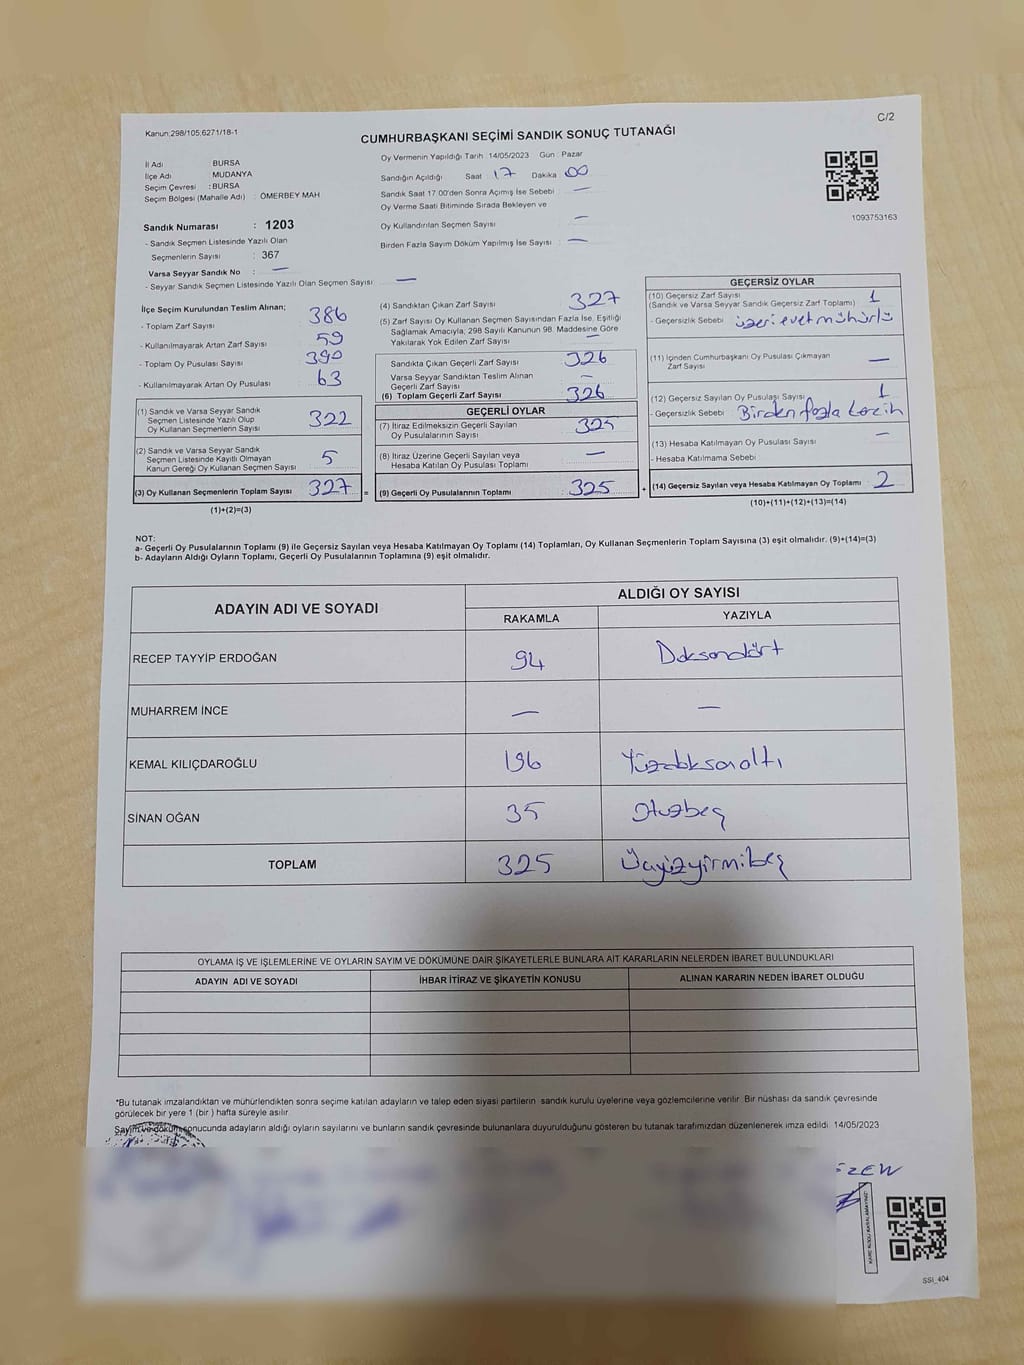 C/2
Kanun:298/105,6271/18-1
CUMHURBAŞKANI SEÇİMİ SANDIK SONUÇ TUTANAĞI
İl Adı BURSA
İlçe Adı MUDANYA
Seçim Çevresi : BURSA
Seçim Bölgesi (Mahalle Adı) : ÖMERBEY MAH
Sandık Numarası : 1203
- Sandık Seçmen Listesinde Yazılı Olan
Seçmenlerin Sayısı : 367
Varsa Seyyar Sandık No : —
- Seyyar Sandık Seçmen Listesinde Yazılı Olan Seçmen Sayısı: —
Oy Vermenin Yapıldığı Tarih : 14/05/2023 Gün : Pazar
Sandığın Açıldığı Saat 17 Dakika 00
Sandık Saat 17.00'den Sonra Açımış İse Sebebi : —
Oy Verme Saati Bitiminde Sırada Bekleyen ve
Oy Kullandırılan Seçmen Sayısı : —
Birden Fazla Sayım Döküm Yapılmış İse Sayısı : —
1093753163
İlçe Seçim Kurulundan Teslim Alınan;
- Toplam Zarf Sayısı 386
- Kullanılmayarak Artan Zarf Sayısı 59
- Toplam Oy Pusulası Sayısı 390
- Kullanılmayarak Artan Oy Pusulası 63
(1) Sandık ve Varsa Seyyar Sandık
Seçmen Listesinde Yazılı Olup
Oy Kullanan Seçmenlerin Sayısı 322
(2) Sandık ve Varsa Seyyar Sandık
Seçmen Listesinde Kayıtlı Olmayan
Kanun Gereği Oy Kullanan Seçmen Sayısı 5
(3) Oy Kullanan Seçmenlerin Toplam Sayısı 327 =
(1)+(2)=(3)
(4) Sandıktan Çıkan Zarf Sayısı 327
(5) Zarf Sayısı Oy Kullanan Seçmen Sayısından Fazla İse, Eşitliği
Sağlamak Amacıyla; 298 Sayılı Kanunun 98. Maddesine Göre
Yakılarak Yok Edilen Zarf Sayısı —
Sandıkta Çıkan Geçerli Zarf Sayısı 326
Varsa Seyyar Sandıktan Teslim Alınan
Geçerli Zarf Sayısı —
(6) Toplam Geçerli Zarf Sayısı 326
GEÇERLİ OYLAR
(7) İtiraz Edilmeksizin Geçerli Sayılan
Oy Pusulalarının Sayısı 325
(8) İtiraz Üzerine Geçerli Sayılan veya
Hesaba Katılan Oy Pusulası Toplamı —
(9) Geçerli Oy Pusulalarının Toplamı 325 +
GEÇERSİZ OYLAR
(10) Geçersiz Zarf Sayısı
(Sandık ve Varsa Seyyar Sandık Geçersiz Zarf Toplamı) 1
- Geçersizlik Sebebi : üzeri evet mühürlü
(11) İçinden Cumhurbaşkanı Oy Pusulası Çıkmayan
Zarf Sayısı —
(12) Geçersiz Sayılan Oy Pusulası Sayısı 1
- Geçersizlik Sebebi : Birden fazla tercih
(13) Hesaba Katılmayan Oy Pusulası Sayısı —
- Hesaba Katılmama Sebebi
(14) Geçersiz Sayılan veya Hesaba Katılmayan Oy Toplamı 2
(10)+(11)+(12)+(13)=(14)
NOT:
a- Geçerli Oy Pusulalarının Toplamı (9) ile Geçersiz Sayılan veya Hesaba Katılmayan Oy Toplamı (14) Toplamları, Oy Kullanan Seçmenlerin Toplam Sayısına (3) eşit olmalıdır. (9)+(14)=(3)
b- Adayların Aldığı Oyların Toplamı, Geçerli Oy Pusulalarının Toplamına (9) eşit olmalıdır.
ADAYIN ADI VE SOYADI ALDIĞI OY SAYISI
RAKAMLA YAZIYLA
RECEP TAYYİP ERDOĞAN 94 Doksandört
MUHARREM İNCE — —
KEMAL KILIÇDAROĞLU 196 Yüzdoksanaltı
SİNAN OĞAN 35 Otuzbeş
TOPLAM 325 Üçyüzyirmibeş
OYLAMA İŞ VE İŞLEMLERİNE VE OYLARIN SAYIM VE DÖKÜMÜNE DAİR ŞİKAYETLERLE BUNLARA AİT KARARLARIN NELERDEN İBARET BULUNDUKLARI
ADAYIN ADI VE SOYADI İHBAR İTİRAZ VE ŞİKAYETİN KONUSU ALINAN KARARIN NEDEN İBARET OLDUĞU
*Bu tutanak imzalandıktan ve mühürlendikten sonra seçime katılan adayların ve talep eden siyasi partilerin sandık kurulu üyelerine veya gözlemcilerine verilir. Bir nüshası da sandık çevresinde
görülecek bir yere 1 (bir ) hafta süreyle asılır.
Sayım ve döküm sonucunda adayların aldığı oyların sayılarını ve bunların sandık çevresinde bulunanlara duyurulduğunu gösteren bu tutanak tarafımızdan düzenlenerek imza edildi. 14/05/2023
SSI_404